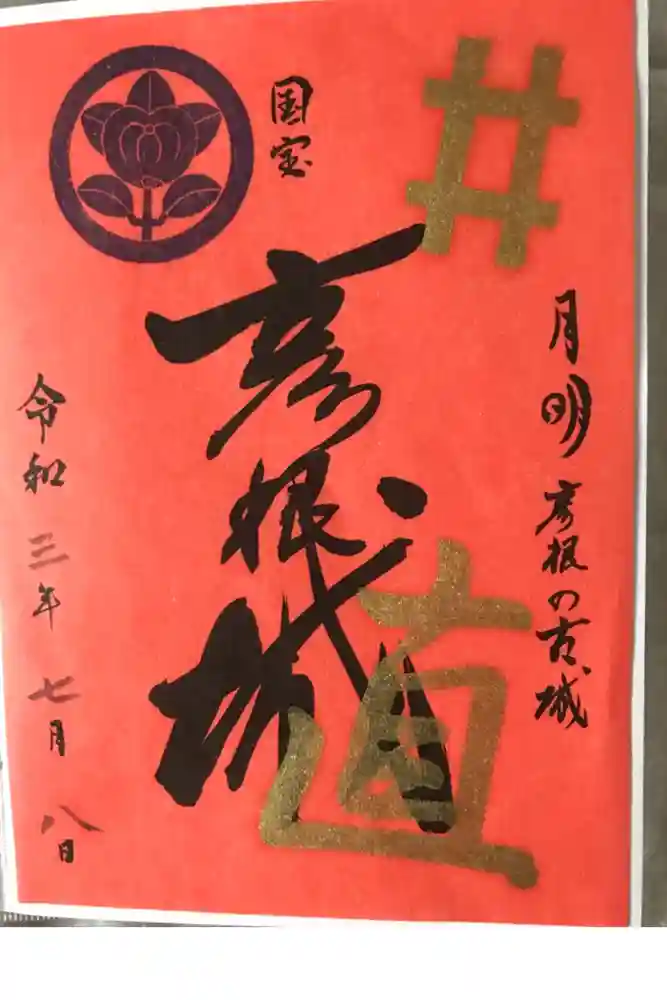 井
月明彦根の古城
国宝
彦根城
直
令和三年七月八日